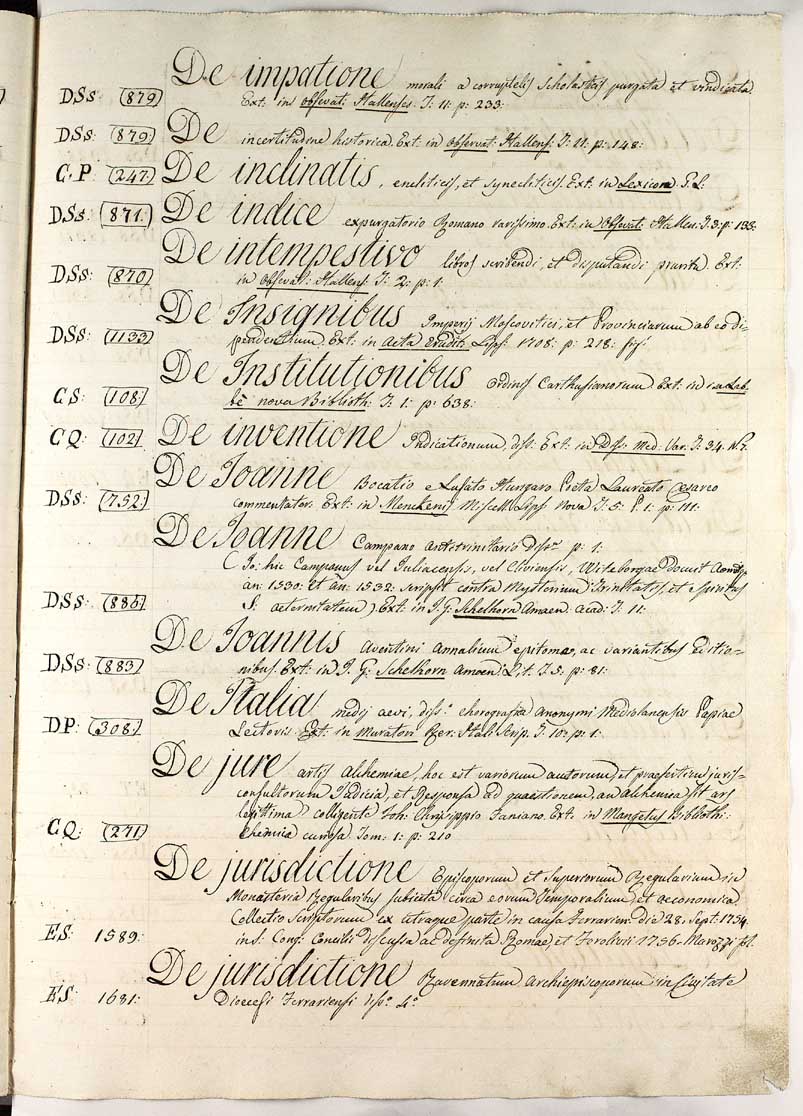 De impatione morali a corruptelis Scholasticis purgata et vindicata
DSs: 879 Ext: ins obsevat: Hallenses T: 11: p: 233:
DSs: 879 De incertitudine historica. Ext: in Observat: Hallens: T: 11: p: 148:
C.P. 247. De inclinatis, encliticis, et synecliticis. Ext: in Lexicon G. L:
DSs: 871: De indice expurgatorio Romano rarissimo. Ext: in Observat: Hallen: T: 3: p: 133:
De intempestivo libros scribendi, et disputandi pruritu. Ext:
DSs: 870 in Observat: Hallens: T: 2: p: 1:
De Insignibus Imperij Moscovitici, et Provinciarum ab eo di-
DSs: 1133 pendentium. Ext: in Acta erudit: Lips: 1708: p: 218:
De Institutionibus ordinis Carthusianorum Ext: in Lab-
CS: 108: bè nova Biblioth: T: 1: p: 638:
CQ: 102 De inventione Indicationum, diss: Ext: in Diss: Med: Var: T: 34. N: 7.
De Joanne Bocatio e Lusato Hungaro Poeta Laureato Cesareo
DSs: 752: commentator. Ext: in Menckenij Miscell: Lips: Nova T: 5: P. 1: p: 111:
De Joanne Campano antitrinitario diss: p: 1:
(Jo: hic Campanus vel Juliacensis, vel Clivensis, Witeborgae docuit
an: 1530: et an: 1532: scripsit contra Mysterium Trinitatis, et Spiritus
DSs: 886 S: aeternitatem) Ext: in J. G: Schelhorn Amaen: acad: T: 11:
De Joannis Aventini annalium epitomae, ac variantibus Editio-
DSs: 883 nibus. Ext: in J. G: Schelhorn Amoen: Lit. T: 5: p: 81:
De Italia medij aevi, diss: chorografia anonymi Mediolanensis Papiae
DP: 308: Lectoris Ext: in Muratori Rer: Itali Scrip. T: 10: p: 1:
De jure artis alchemiae, hoc est variorum autorum, et praesertim juris-
consultorum Judicia, et Responsa ad quaestionem, an Alchemia sit ars
legittima colligente Joh: Chrisippo Faniano. Ext: in Mangetus Biblioth:
CQ: 271 chemica curiosa Tom: 1: p: 210
De jurisdictione Episcoporum et Superiorum Regularium in
Monasteria Regularibus subiecta circa eorum temporalium, et oeconomica
Collectio Scriptorum ex utraque parte in causa Ferrarien: die 28: Sept: 1734.
ES: 1589: in S: Cong: Concilii discussa ac definita Romae, et Forolivii 1736. Marozzi fol.
De jurisdictione Ravennatum Archiepiscoporum in Civitate
ES: 1681: Diocesi Ferrariensi diss: 4: